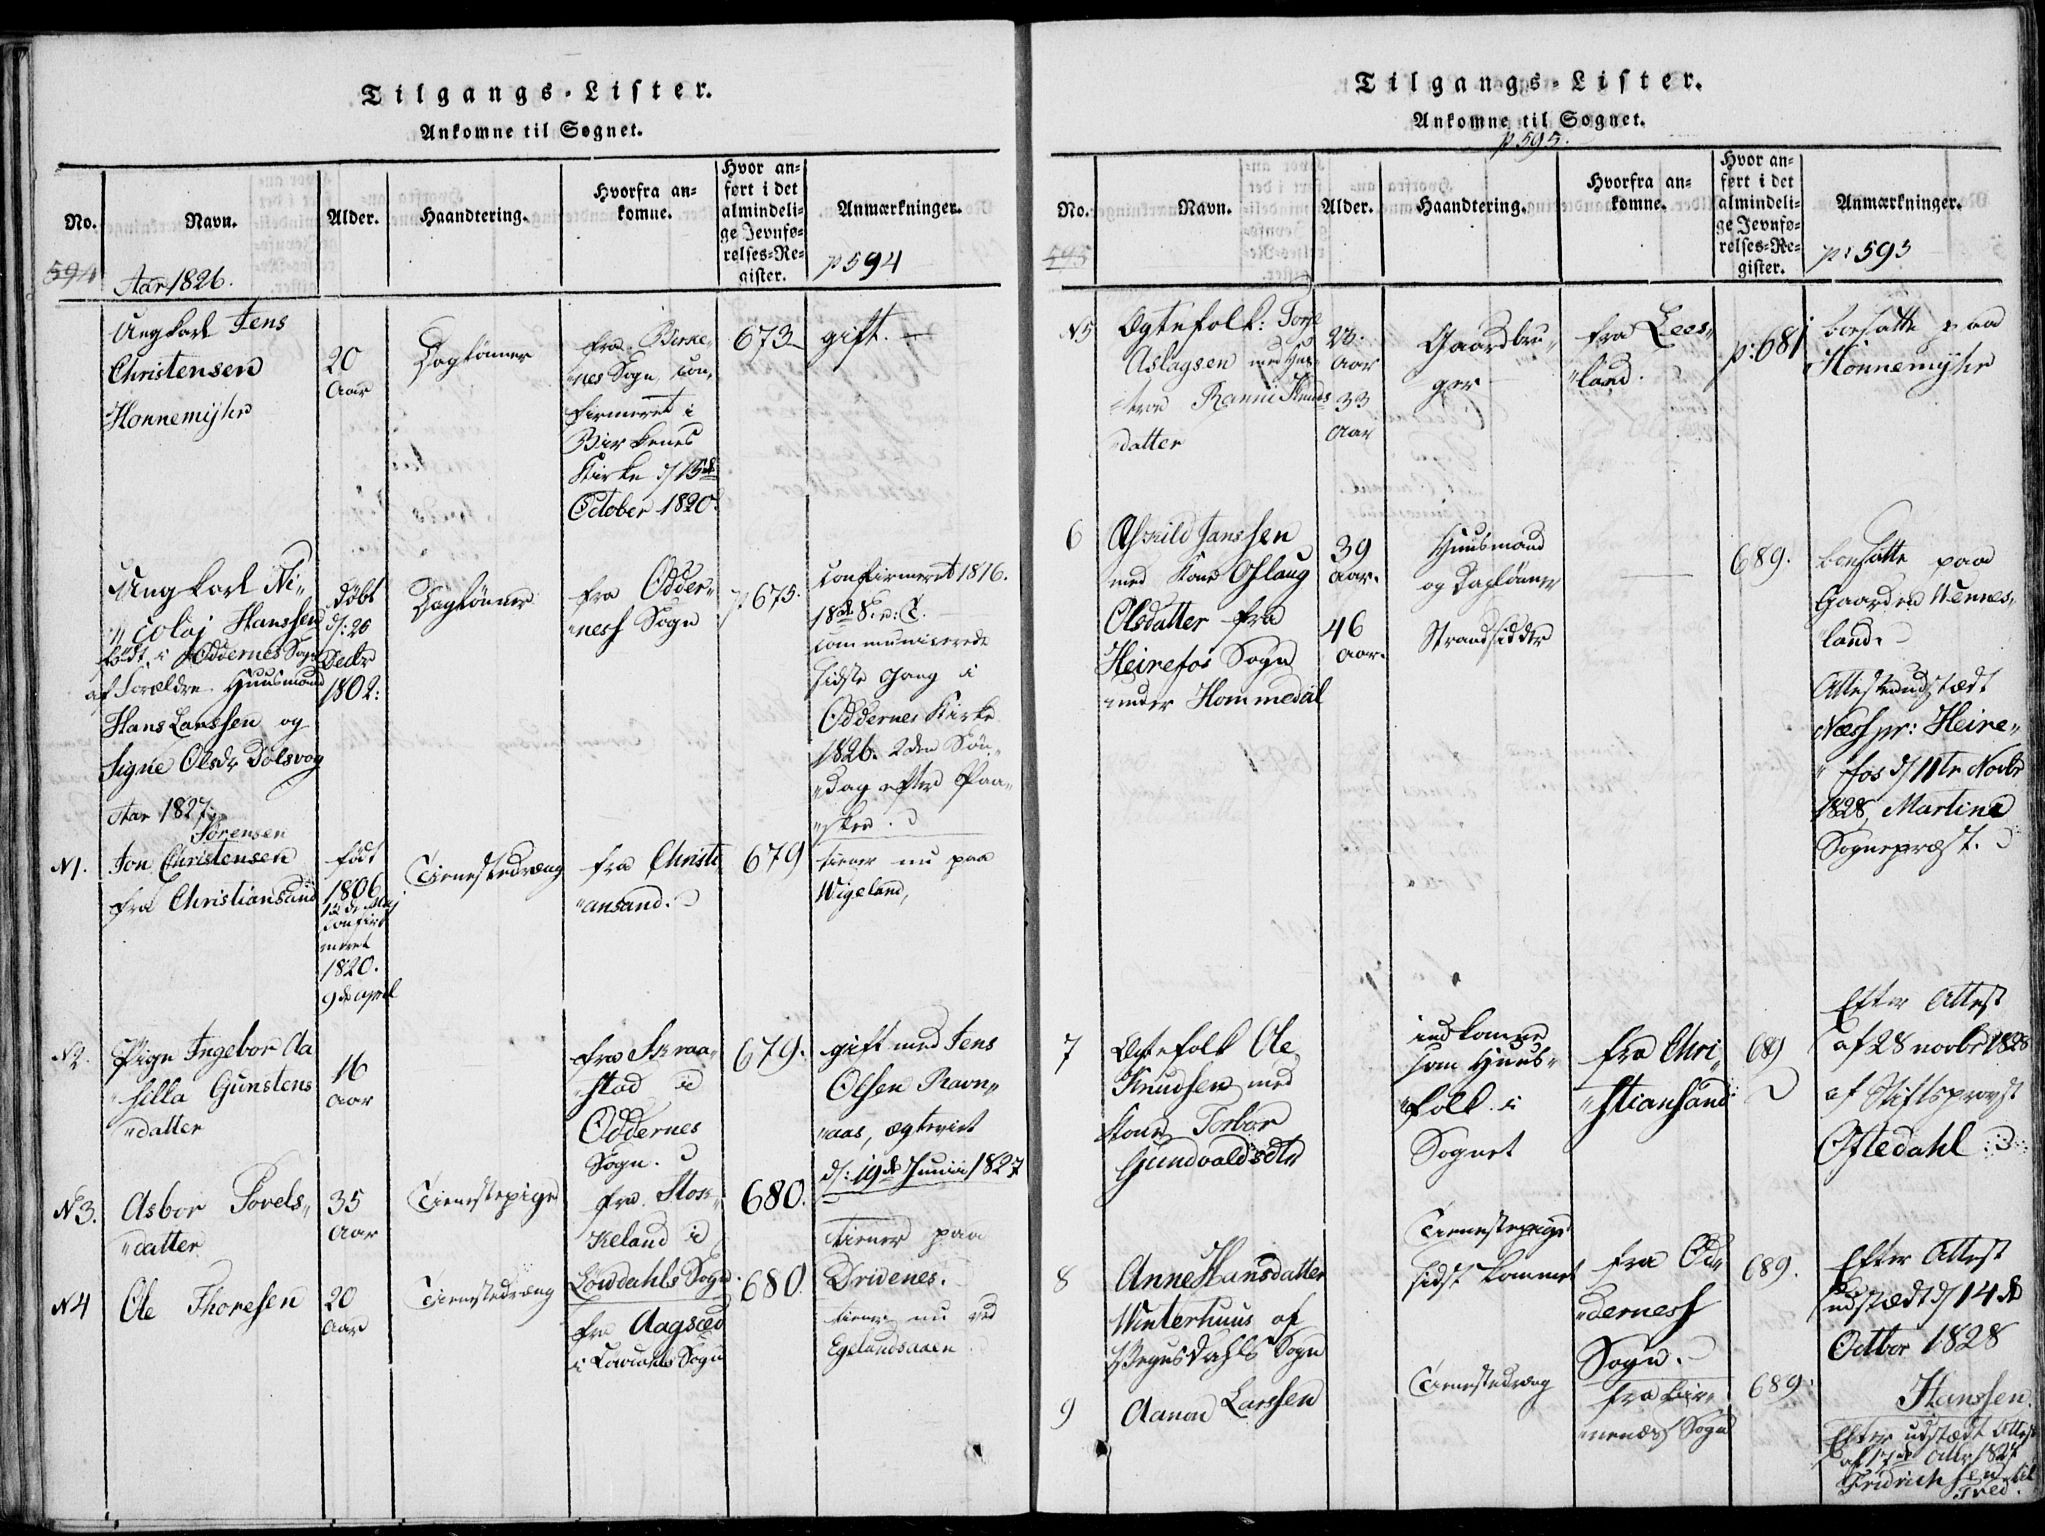 Tilgangs-Lister.
Ankomne til Sognet.
No.
Navn.
Alder.
Haandtering.
Hvorfra an-
komne.
Hvor an-
ført i det
almindeli-
ge Jevnfø-
relses-Re-
gister.
Anmærkninger.
594
Aar 1826.
p 594
Ungkarl Jens
Christensen
Honnemyhr
20
Aar
Daglönner
fra Birke-
nes Sogn, con-
firmeret i
Birkenes
Kirke d/ 15de
October 1820.
673
gift.
Ungkarl Ni-
colaj Hanssen
födt i Oddernes Sogn
af Forældre Huusmand
Hans Larssen og
Signe Olsdr Dolsvog
döbt
d: 26
Decbr
1802:
Daglönner
fra Odder-
ness Sogn
p 675.
confirmeret 1816.
18de S. e: T.
communicerede
sidste Gang i
Oddernes Kirke
1826. 2den Sön-
dag efter Paa-
ske.
Aar 1827.
N1.
Sörensen
Jon Christensen
fra Christiansand
födt
1806
12 de Maj
confir
meret
1820.
9de april
Tienestedreng
fra Christi
ansand.
679
tiener nu paa
Wigeland,
N2.
Pige Ingebor Aa
silla Gunstens
datter
16
Aar
fra Skraa-
stad i
Oddernes
Sogn.
679.
gift med Jens
Olsen Ravn-
aas, ægteviet
d: 19de Junii 1827
N 3.
Asbor Povels-
datter
35
Aar
Tienestepige
fra Stok-
keland i
Löwdahls Sogn
680.
tiener paa
Dridenes.
N4
Ole Thoresen
20
Aar
Tienestedreng
fra Aagsæd
i Löwdahls Sogn
680.
tiener nu ved
Egelandsaaen
Tilgangs-Lister.
Ankomne til Sognet.
p 595.
No.
Navn.
Alder.
Haandtering.
Hvorfra an-
komne.
Hvor an-
ført i det
almindeli-
ge Jevnfø-
relses-Re-
gister.
Anmærkninger.
595
p: 595
N5
Ægtefolk: Torje
Aslagsen med Hus-
troe Ranni Knuds
datter
Aar
33
Aar
Gaardbru-
ger
fra Lees-
land.
p: 681
bosatte paa
Honnemyhr
6
Asknild Janssen
med Kone Oslaug
Olsdatter fra
Heirefos Sogn
under Hommedal
39
Aar.
46
Aar.
Huusmand
og Daglönner
Strandsidder
689.
bosatte paa
Gaarden Wennes-
land.
Attest udstædt
Næss pr: Heire-
fos d/ 11te Novbr
1828, Martine
Sognepræst.
7
Ægtefolk Ole
Knudsen med
Kone Torbor
Gundvaldsdtr
indkomne
som Huus-
folk i
Sognet
fra Chri-
stiansand
689
Efter Attest
af 28 novbr 1828
af Stiftsprovst
Oftedahl
8
Anne Hansdatter
Winterhuus af
Wegusdahls Sogn
Tienestepige
sidst kommet
fra Od-
derness
Sogn.
689.
Efter Attest
udstædt d/ 14de
Octbor 1828
Hanssen.
9
Aanon Larssen
Tienestedreng
fra Bir-
kenæs Sogn
689.
Efter udstædt Attest
af 17de Octbr 1827
Fridrichsen til
Tved.